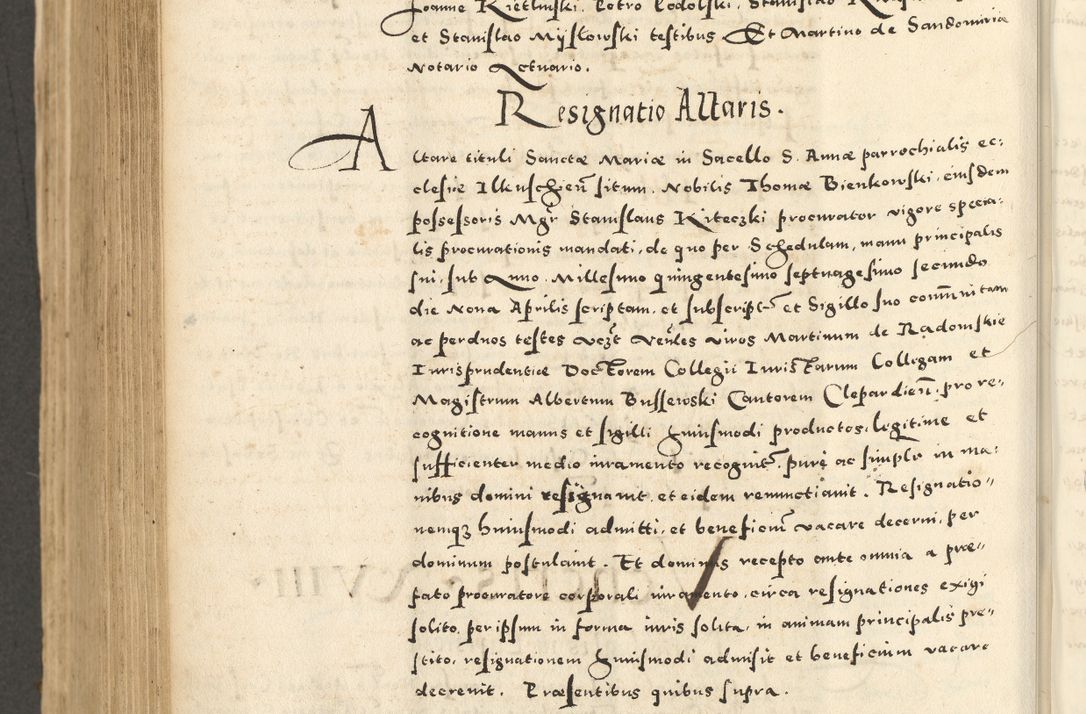 Joanne Kietlinski. Petro Podolski. Stanislao
et Stanislao Myskowski testibus Et Martino de Sandomiria
Notario Actuario.
Resignatio Altaris.
Altare tituli Sanctæ Mariæ in Sacello S. Annæ parrochialis ec:
clesiæ Ilkuschieñ situm. Nobilis Thomæ Bienkowski, eiusdem
possessoris Mgr Stanislaus Kiteczki procurator vigore specia:
lis procurationis mandati, de quo per Schedulam, manu principalis
sui, sub Anno. Millesimo quingentesimo septuagesimo secundo
die Nona Aprilis scriptam, et subscript et Sigillo suo commnitam
ac per duos testes vczt venles viros Martinum de Radomskie
Iurisprudentiæ Doctorem Collegii Iuristarum Collegam et
Magistrum Albertum Busserski Cantorem Clepardieñ. pro re-
cognitione manus et sigilli huiusmodi productos, legitime et
sufficienter medio iuramento recognit. pure ac simplr in ma:
nibus domini resignavit, et eidem renunctiavit. Resignatio-
nemq; huiusmodi admitti, et beneficium vacare decerni, per
dominum postulavit. Et dominus recepto ante omnia a præ-
fato procuratore corporali iuramento, circa resignationes exigi
solito, per ipsum in forma iuris solita, in animam principalis pre-
stito, resignationem huiusmodi admisit et beneficium vacare
decrevit. Præsentibus quibus supra.